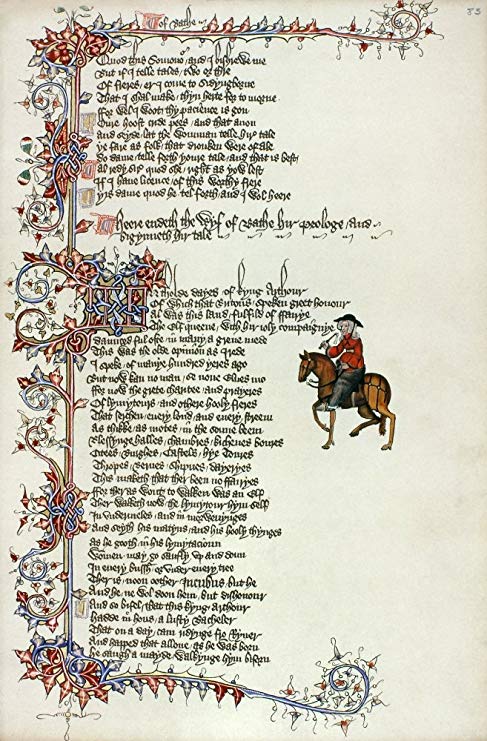 of Bathe
Quod this Somonour and I bishrewe me
But if I telle tales two or thre
Of freres er I come to Sidyngborne
That I shal make thyn herte for to morne
ffor wel I woot thy pacience is gon
Oure hoost cride pees and that anon
And seyde lat the womman telle hir tale
Ye fare as folk that dronken were of ale
Do dame telle forth youre tale and that is best
Al redy sire quod she right as yow lest
If I have licence of this worthy frere
Yis dame quod he tel forth and I wol heere
Heere endeth the Wyf of Bathe hir prologe and
bigynneth hir tale
In tholde dayes of kyng Arthour
Of which that Britons speken greet honour
Al was this land fulfild of ffairye
The Elf queene with hir ioly compaignye
daunced ful ofte in many a grene mede
This was the olde opinion as I rede
I speke of manye hundred yeres ago
But now kan no man se none Elves mo
ffor now the grete charitee and prayeres
Of lymytours and othere hooly freres
That serchen every lond and every streem
As thikke as motes in the sonne beem
Blessynge halles chambres kichenes boures
Citees Burghes Castels hye Toures
Thropes Bernes Shipnes dayeryes
This maketh that ther been no ffairyes
ffor ther as wont to walken was an Elf
Ther walketh now the lymytour hym self
In undermeles and in morwenynges
And seyth his matyns and his hooly thynges
As he gooth in his lymytacioun
Wommen may go saufly up and doun
In every bussh or under every tree
Ther is noon oother Incubus but he
And he ne wol doon hem but dishonour
And so bifel that this kyng Arthour
hadde in hous a lusty Bacheler
That on a day cam ridynge fro Ryver
And happed that allone as he was born
he saugh a mayde walkynge hym biforn